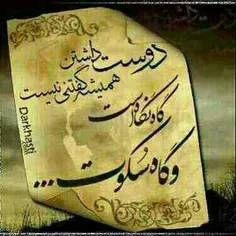 دوست داشتن
همیشه گفتنی نیست
گاه نگاه است
و گاه سکوت ...
Darkhasti